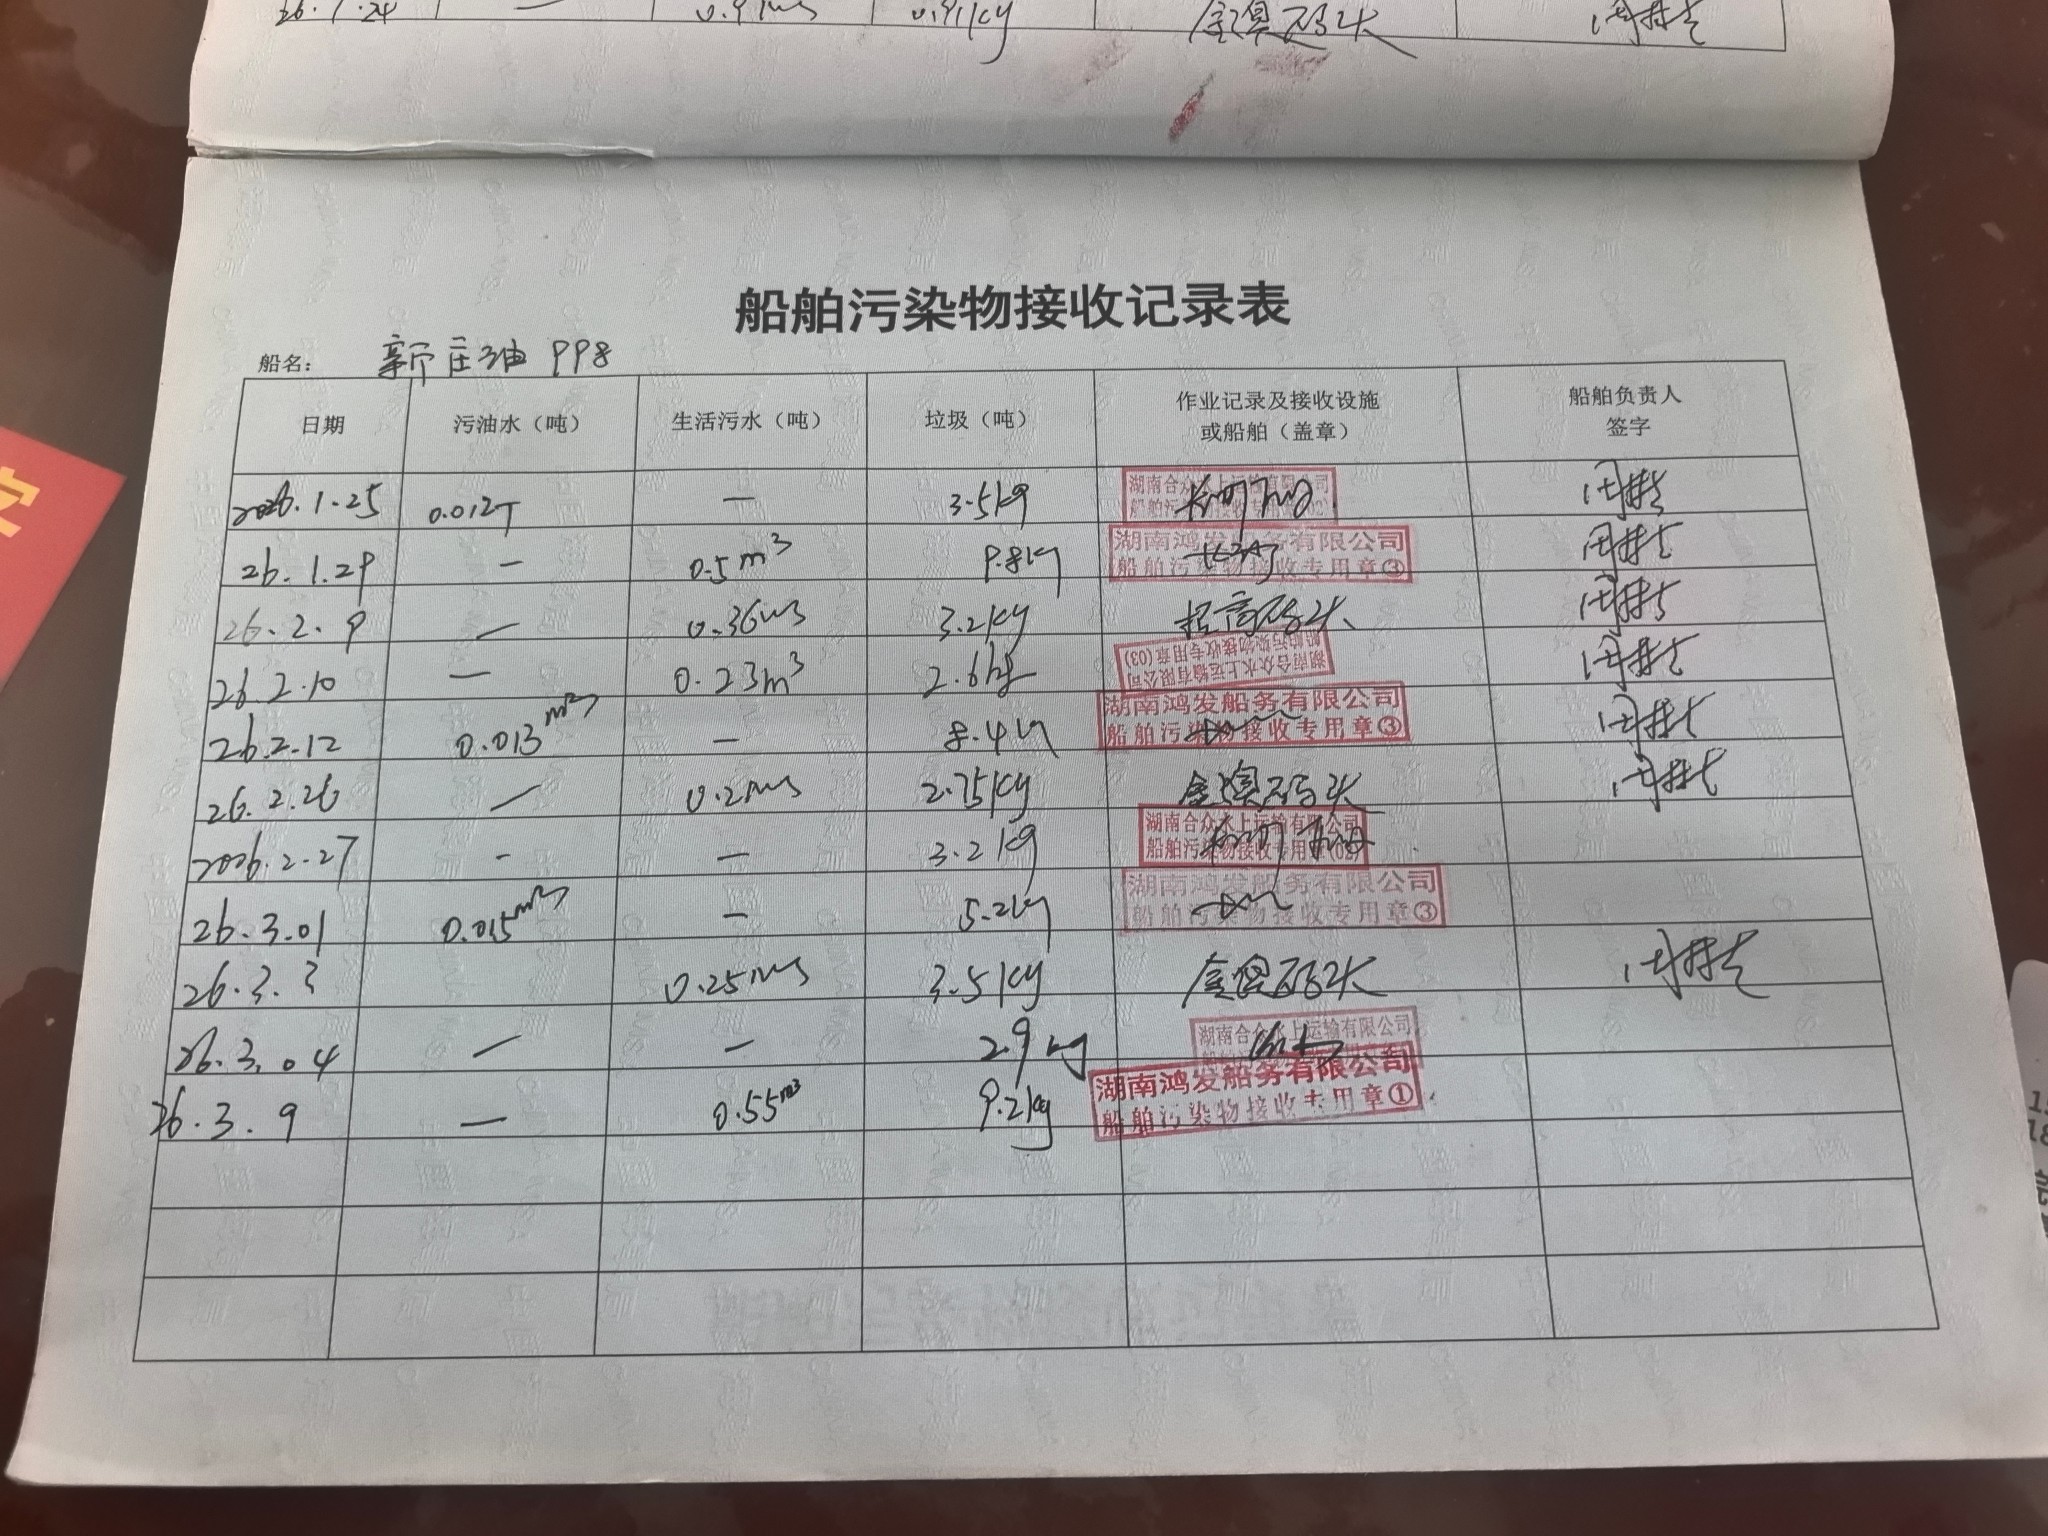 26.1.24 — 金澳码头
船舶污染物接收记录表
船名： 新庄油998
日期 污油水（吨） 生活污水（吨） 垃圾（吨） 作业记录及接收设施或船舶（盖章） 船舶负责人签字
2026.1.25 0.012T — 3.5kg 湖南合众水上运输有限公司
26.1.29 — 0.5m³ 9.8kg 湖南鸿发船务有限公司 船舶污染物接收专用章③
26.2.9 — 0.36m3 3.2kg 码头
26.2.10 — 0.23m³ 2.6kg 湖南合众水上运输有限公司 船舶污染物接收专用章(03)
26.2.12 0.013m³ — 8.4kg 湖南鸿发船务有限公司 船舶污染物接收专用章③
26.2.26 — 0.2m3 2.75kg 金澳码头
2026.2.27 - — 3.2kg 湖南合众水上运输有限公司 船舶污染物接收专用章
26.3.01 0.015m³ — 5.2kg 湖南鸿发船务有限公司 船舶污染物接收专用章③
26.3.3 0.25m3 3.5kg 金澳码头
26.3.04 — — 2.9kg 湖南合众水上运输有限公司
26.3.9 — 0.55m³ 9.2kg 湖南鸿发船务有限公司 船舶污染物接收专用章①